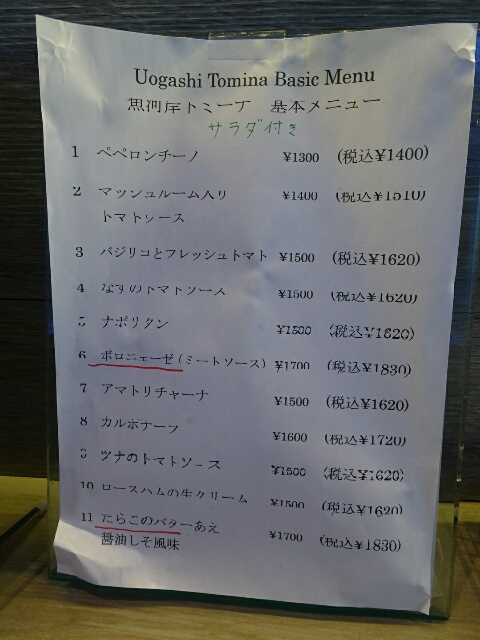 Uogashi Tomina Basic Menu
魚河岸トミーナ 基本メニュー
サラダ付き
1 ペペロンチーノ ¥1300 (税込¥1400)
2 マッシュルーム入り ¥1400 (税込¥1510)
トマトソース
3 バジリコとフレッシュトマト ¥1500 (税込¥1620)
4 なすのトマトソース ¥1500 (税込¥1620)
5 ナポリタン ¥1500 (税込¥1620)
6 ボロニェーゼ(ミートソース) ¥1700 (税込¥1830)
7 アマトリチャーナ ¥1500 (税込¥1620)
8 カルボナーラ ¥1600 (税込¥1720)
9 ツナのトマトソース ¥1500 (税込¥1620)
10 ロースハムの生クリーム ¥1500 (税込¥1620)
11 たらこのバターあえ ¥1700 (税込¥1830)
醤油しそ風味